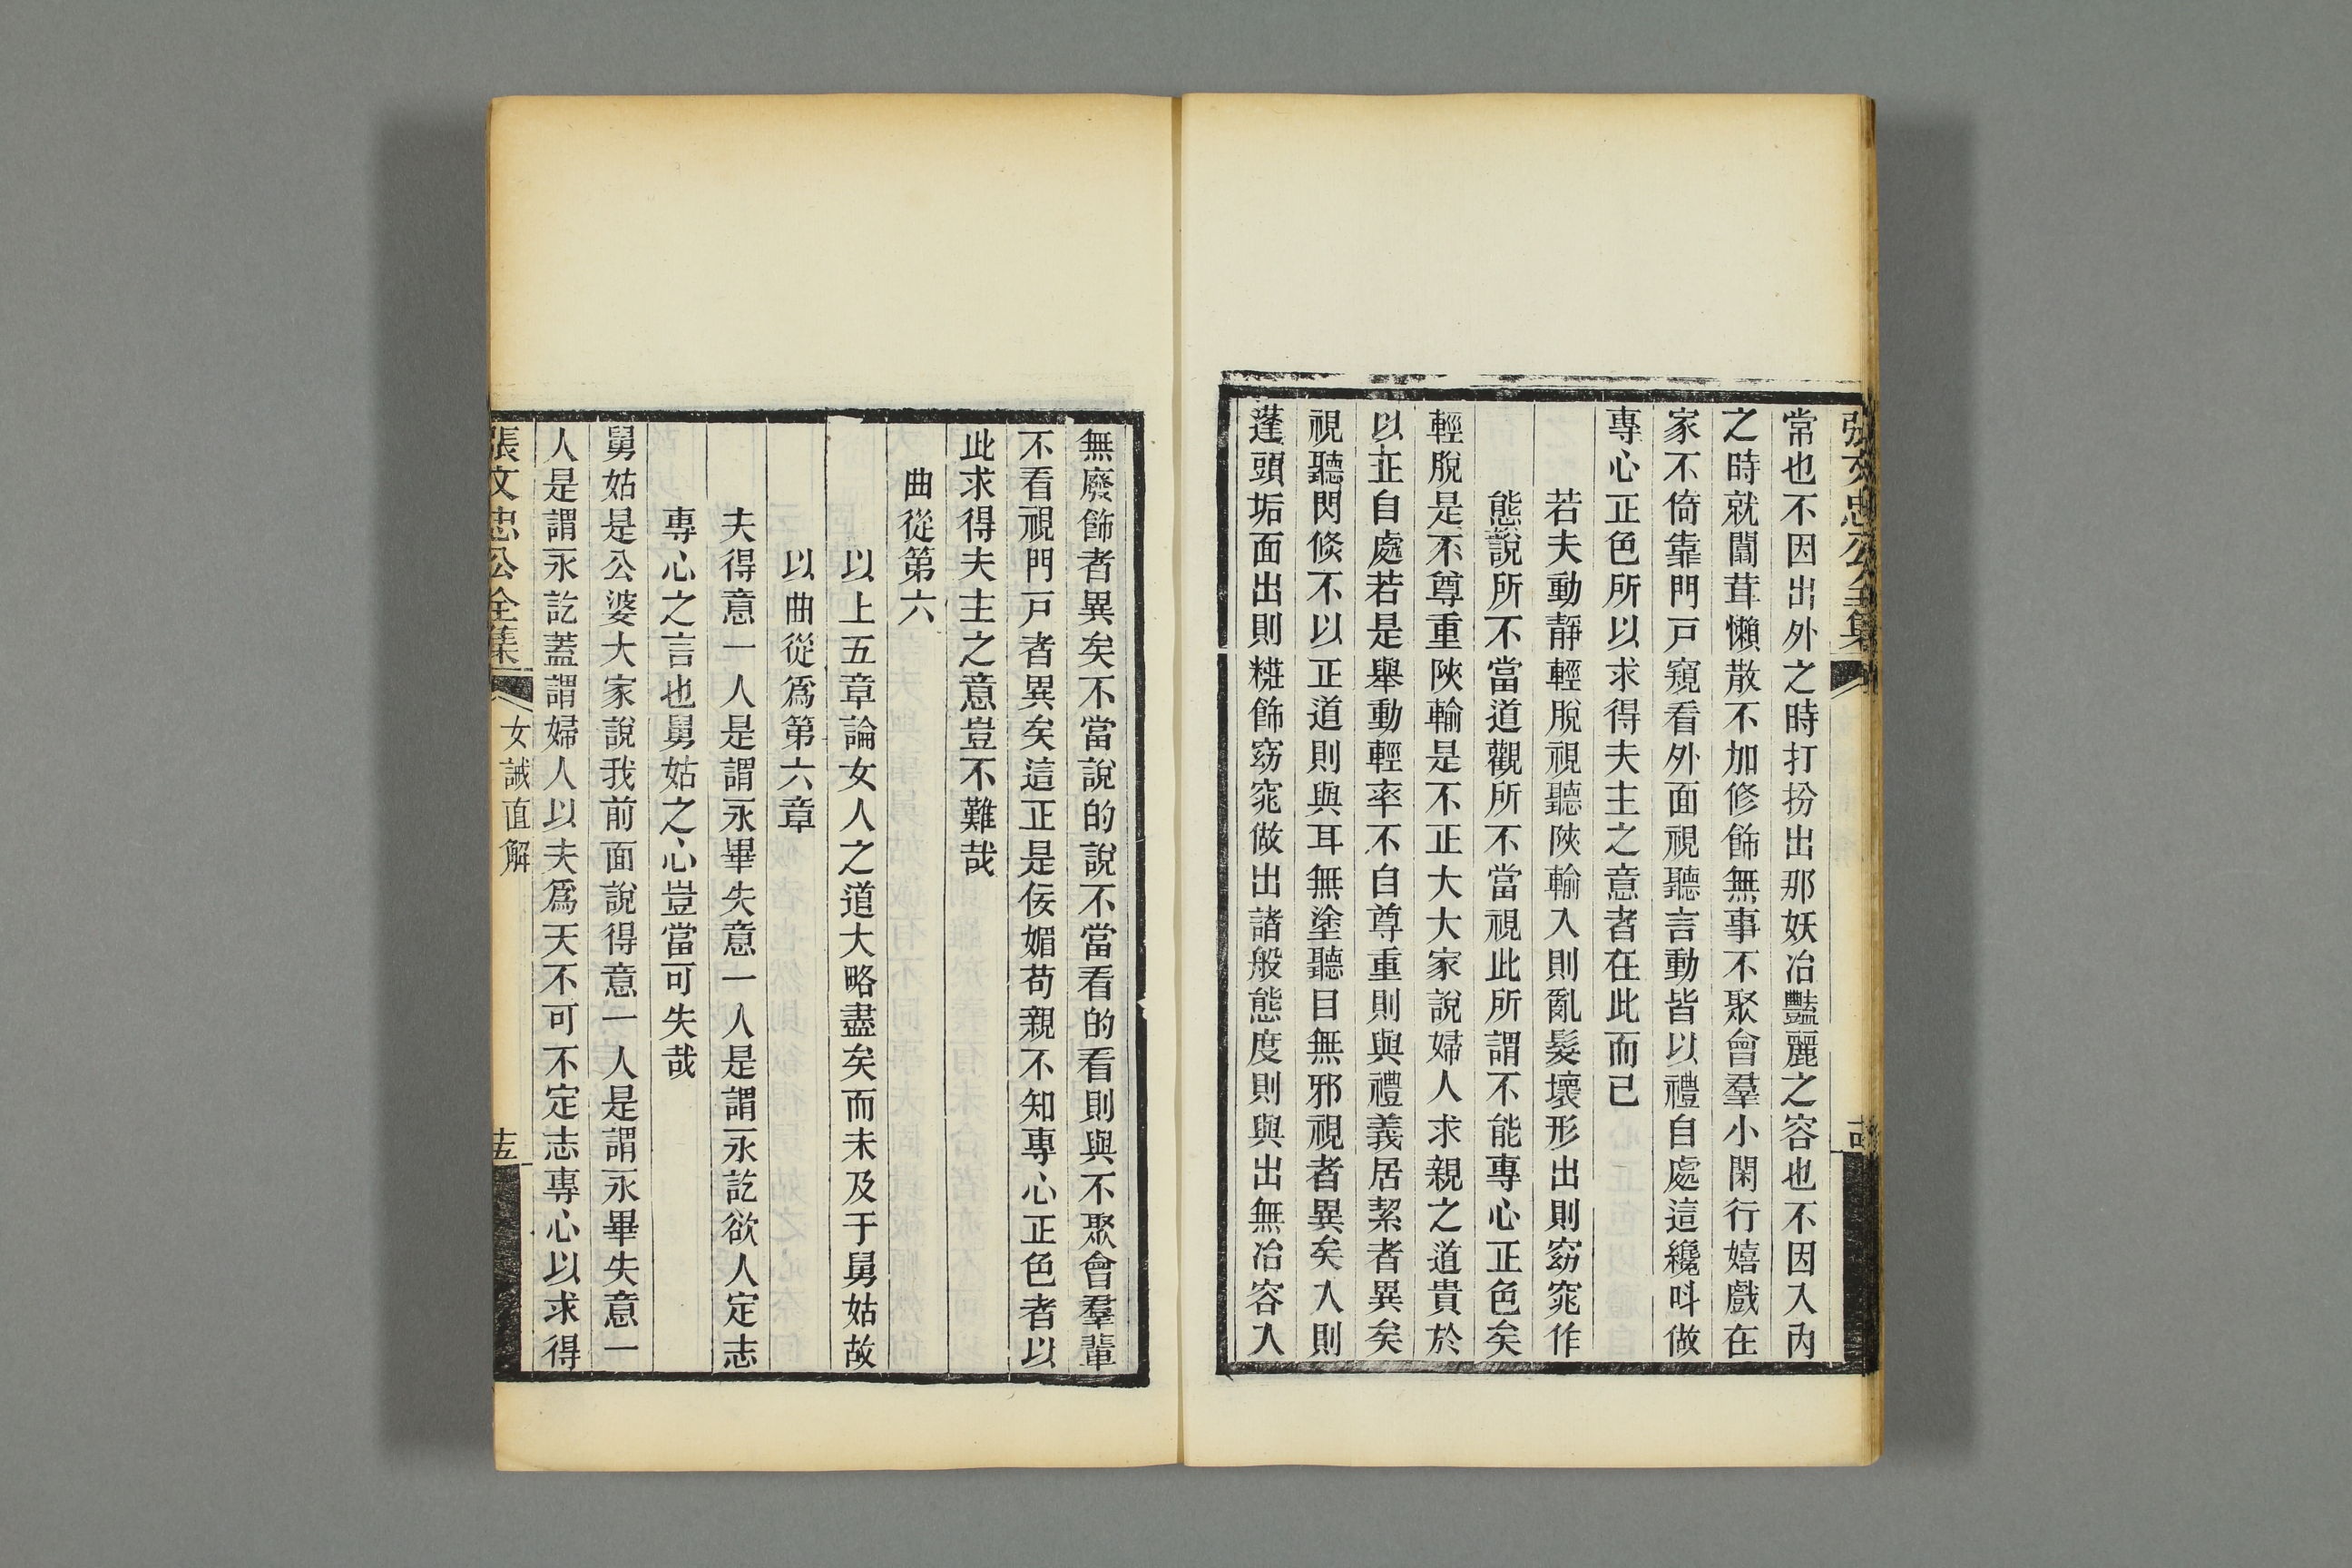 張文忠公全集
常也不因出外之時打扮出那妖冶豔麗之容也不因入內
之時就闒茸懶散不加修飾無事不聚會羣小閑行嬉戲在
家不倚靠門戸窺看外面視聽言動皆以禮自處這纔呌做
專心正色所以求得夫主之意者在此而已
若夫動靜輕脫視聽陝輸入則亂髮壞形出則窈窕作
態說所不當道觀所不當視此所謂不能專心正色矣
輕脫是不尊重陝輸是不正大大家說婦人求親之道貴於
以正自處若是舉動輕率不自尊重則與禮義居絜者異矣
視聽閃倐不以正道則與耳無塗聽目無邪視者異矣入則
蓬頭垢面出則糚飾窈窕做出諸般態度則與出無冶容入
無廢飾者異矣不當說的說不當看的看則與不聚會羣輩
不看視門戸者異矣這正是佞媚苟親不知專心正色者以
此求得夫主之意豈不難哉
曲從第六
以上五章論女人之道大略盡矣而未及于舅姑故
以曲從爲第六章
夫得意一人是謂永畢失意一人是謂永訖欲人定志
專心之言也舅姑之心豈當可失哉
舅姑是公婆大家說我前面說得意一人是謂永畢失意一
人是謂永訖蓋謂婦人以夫爲天不可不定志專心以求得
張文忠公全集 女誡直解 十五